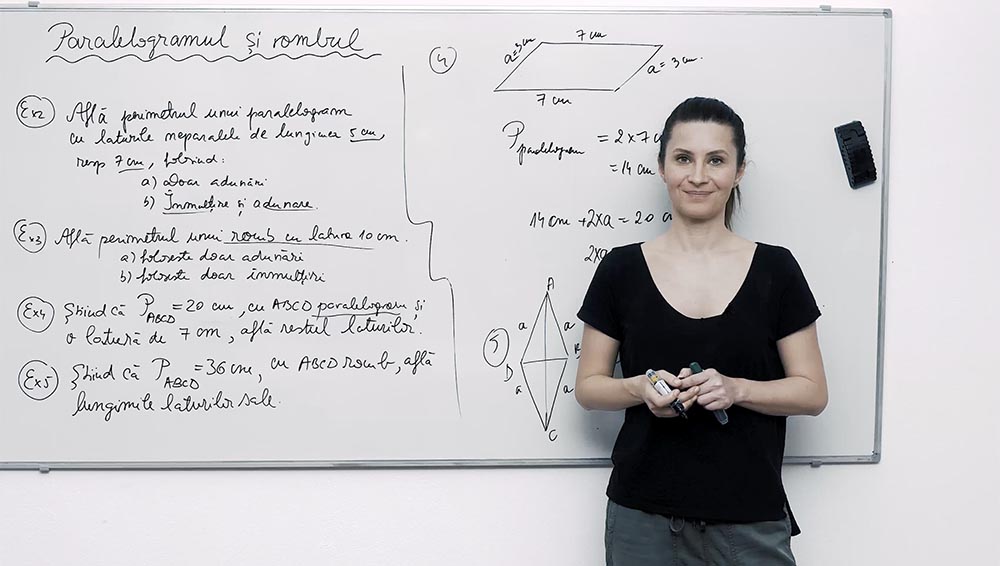 Paralelogramul și rombul
Ex2 Află perimetrul unui paralelogram
cu laturile neparalele de lungimea 5 cm,
resp 7 cm, folosind:
a) Doar adunări
b) Înmulțire și adunare.
Ex3 Află perimetrul unui romb cu latura 10 cm.
a) folosește doar adunări
b) folosește doar înmulțiri
Ex4 Știind că P ABCD = 20 cm, cu ABCD paralelogram și
o latură de 7 cm, află restul laturilor.
Ex5 Știind că P ABCD = 36 cm, cu ABCD romb, află
lungimile laturilor sale.
4
7 cm
a = 3 cm
a = 3 cm.
7 cm
P paralelogram = 2 x 7 c
= 14 cm
14 cm + 2xa = 20 c
2xa
5
A
a a
D B
a a
C